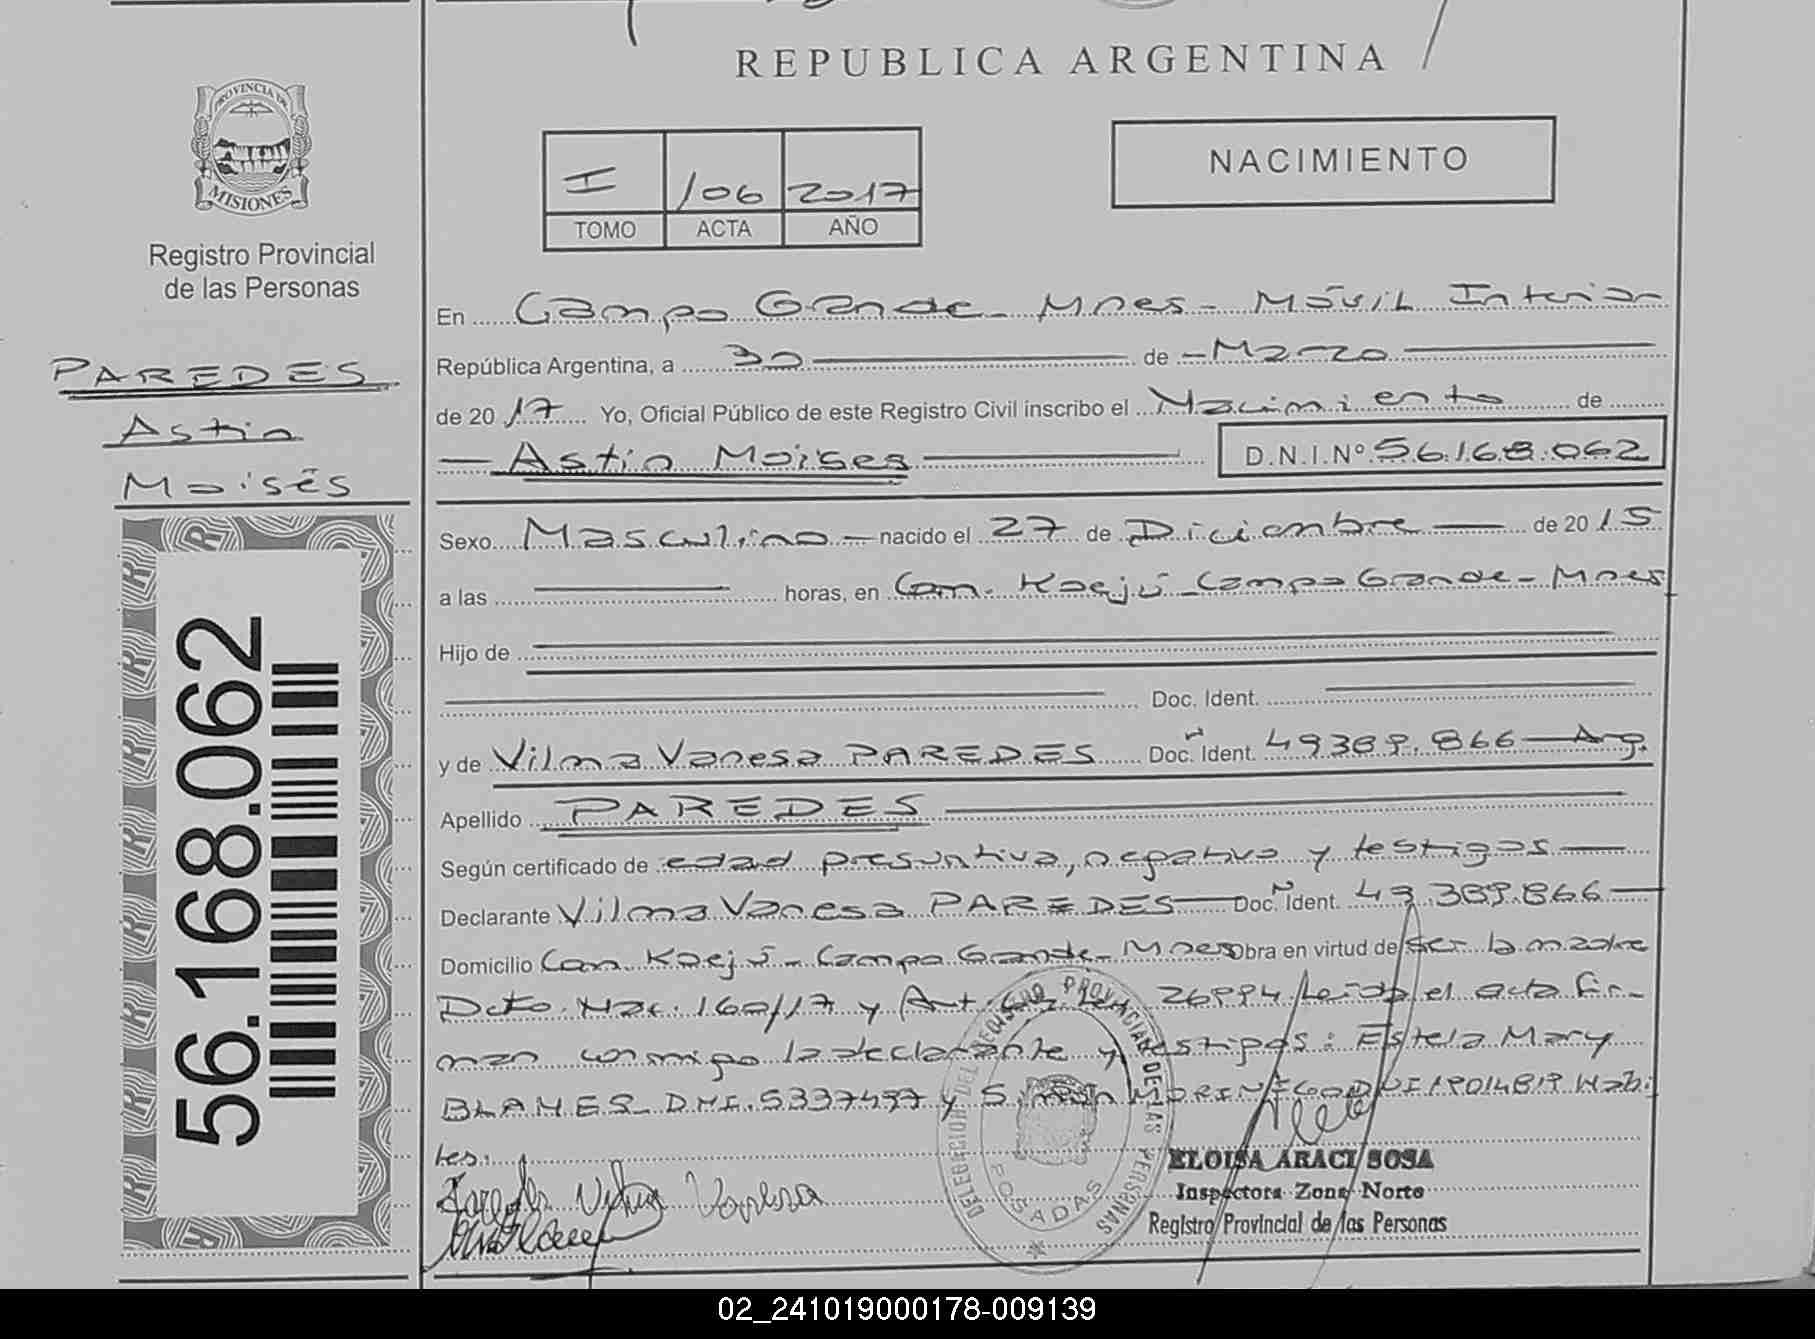 REPUBLICA ARGENTINA
PROVINCIA DE
MISIONES
Registro Provincial
de las Personas
I 106 2017
TOMO ACTA AÑO
NACIMIENTO
PAREDES
Astin
Moisés
56.168.062
En Campo Grande - Mnes - Móvil Interior
República Argentina, a 30 de Marzo
de 2017 Yo, Oficial Público de este Registro Civil inscribo el Nacimiento de
Astin Moises D.N.I.Nº 56.168.062
Sexo Masculino nacido el 27 de Diciembre de 2015
a las horas, en Com. Kaejú - Campo Grande - Mnes
Hijo de
Doc. Ident.
y de Vilma Vanesa PAREDES Doc. Ident. 49389.866 - Arg.
Apellido PAREDES
Según certificado de edad presuntiva, negativo y testigos
Declarante Vilma Vanesa PAREDES Doc. Ident. 49.389.866
Domicilio Com. Kaejú - Campo Grande - Mnes Obra en virtud de ser la madre
Dcto. Nac. 160/17 y Art. Ley 26994 Leído el acta fir-
man conmigo la declarante y testigos: Estela Mary
BLANES DNI. 5337497 y Simón MORINIGO DNI 18014819 Habi
les.
Paredes Vilma Vanesa
DELEGACION DEL REGISTRO PROVINCIAL DE LAS PERSONAS
POSADAS
ELOISA ARACI SOSA
Inspectora Zona Norte
Registro Provincial de las Personas
02_241019000178-009139